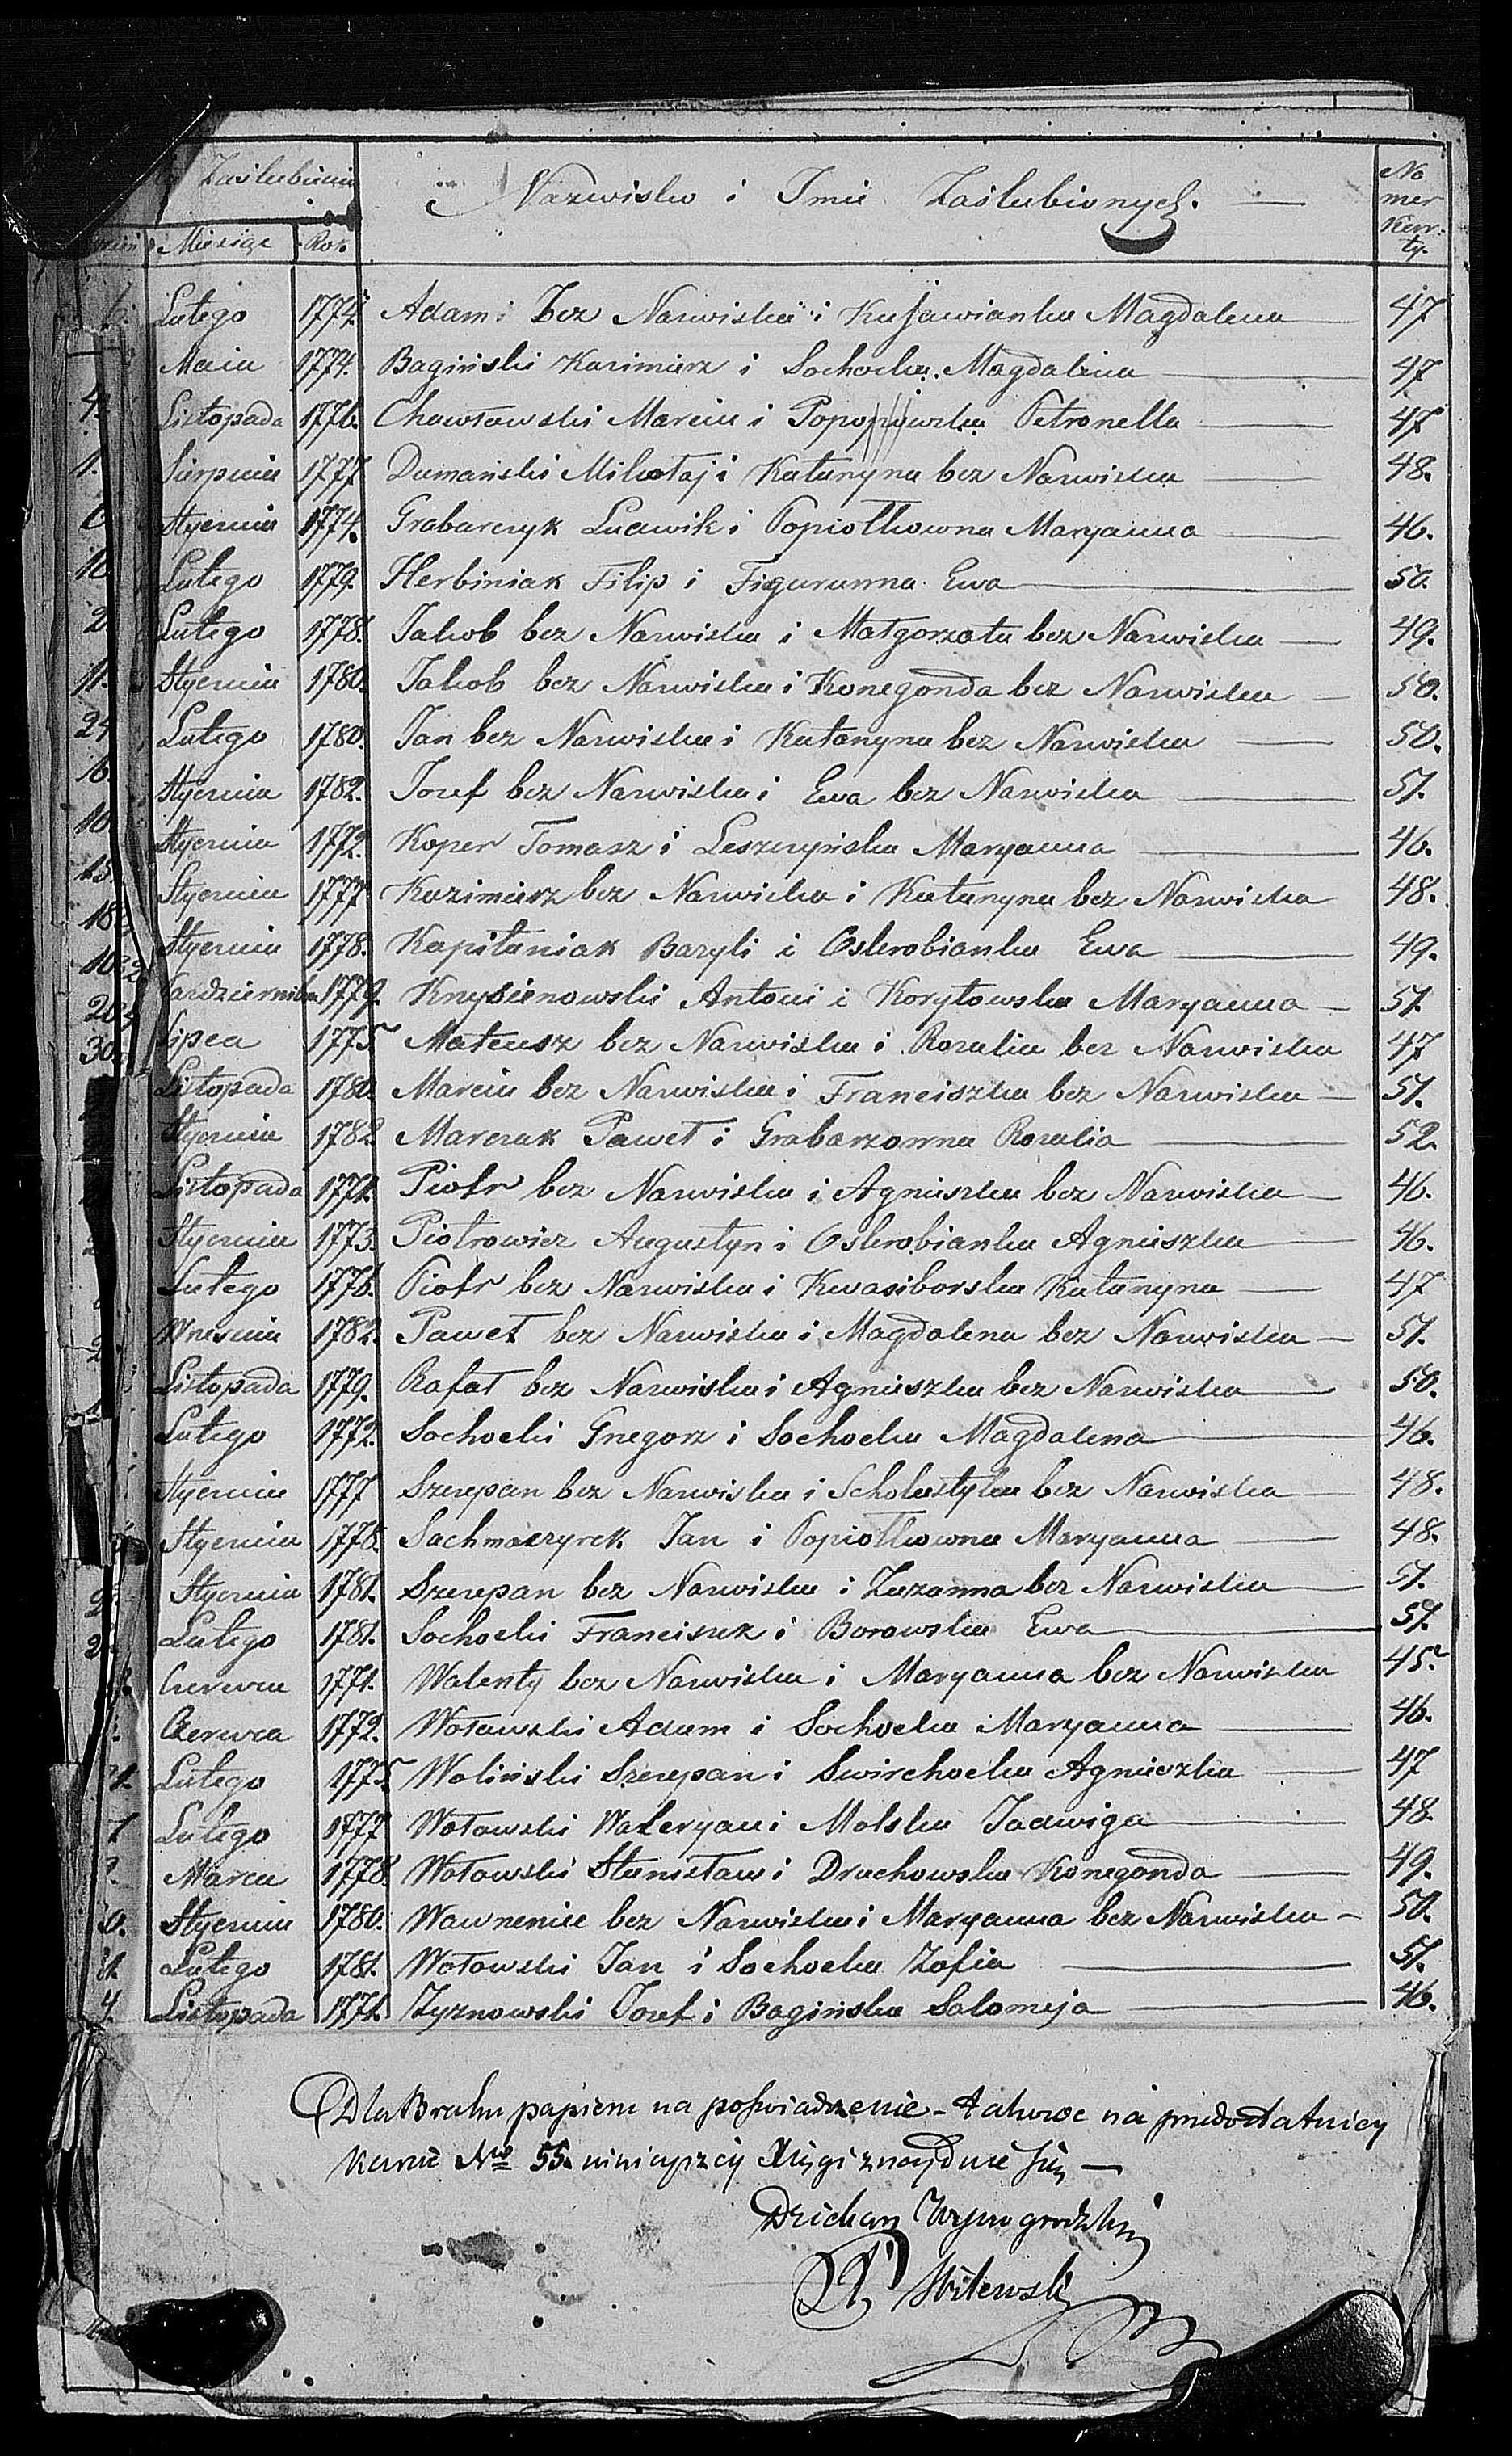 Zaślubienia
Nazwisko i Imie Zaślubionych.
No
mer
Kar-
ty.
Miesiąc Rok
Lutego 1774. Adam bez Nazwiska i Kujawianka Magdalena 47
Maia 1774. Bagiński Kazimierz i Sochocka Magdalena 47
4. Listopada 1776. Chawłowski Marcin i Petronella 47
1. Sierpnia 1777 Dumański Mikołaj i Katarzyna bez Nazwiska 48.
Stycznia 1774. Grabarczyk Ludwik i Popiołkowna Maryanna 46.
10 Lutego 1779. Herbiniak Filip i Figuranna Ewa 50.
2. Lutego 1778. Jakob bez Nazwiska i Małgorzata bez Nazwiska 49.
11. Stycznia 1780. Jakob bez Nazwiska i Konegonda bez Nazwiska 50.
24 Lutego 1780. Jan bez Nazwiska i Katarzyna bez Nazwiska 50.
16. Stycznia 1782. Jozef bez Nazwiska i Ewa bez Nazwiska 51.
10 Stycznia 1772. Koper Tomasz i Leszczyńska Maryanna 46.
Stycznia 1777 Kazimierz bez Nazwiska i Katarzyna bez Nazwiska 48.
Stycznia 1778. Kapitaniak Bazyli i Oskrobianka Ewa 49.
Pazdziernika 1779. Knyszenowski Antoni i Korytowska Maryanna 51.
30 Lipca 1775 Mateusz bez Nazwiska i Rozalia bez Nazwiska 47
Listopada 1780 Marcin bez Nazwiska i Franciszka bez Nazwiska 51.
Stycznia 1782 Marczak Paweł i Grabarzowna Rozalia 52.
Listopada Piotr bez Nazwiska i Agnieszka bez Nazwiska 46.
Stycznia 1773. Piotrowicz Augustyn i Oskrobianka Agnieszka 46.
Lutego 1776. Piotr bez Nazwiska i Kwasiborska Katarzyna 47
Wrzesnia 1782. Paweł bez Nazwiska i Magdalena bez Nazwiska 51.
Listopada 1779. Rafał bez Nazwiska i Agnieszka bez Nazwiska 50.
Lutego 1772. Sochocki Grzegorz i Sochocka Magdalena 46.
Stycznia 1777 Szczepan bez Nazwiska i Scholastyka bez Nazwiska 48.
Stycznia 1778. Sachmaczyrek Jan i Popiołkowna Maryanna 48.
Stycznia 1781. Szczepan bez Nazwiska i Zuzanna bez Nazwiska 51.
Lutego 1781. Sochocki Franciszek i Borowska Ewa 51.
Czerwca 1771. Walenty bez Nazwiska i Maryanna bez Nazwiska 45.
Czerwca 1772. Wołowski Adam i Sochocka Maryanna 46.
Lutego 1775 Woliński Szczepan i Swirchocka Agnieszka 47
Lutego 1777 Wołowski Waleryan i Molska Jadwiga 48.
Marca 1778 Wołowski Stanisław i Druchowska Konegonda 49.
Stycznia 1780. Wawrzeniec bez Nazwiska i Maryanna bez Nazwiska 50.
Lutego 1781. Wołowski Jan i Sochocka Zofia 51.
4. Listopada 1771. Zyznowski Jozef i Bagińska Salomeja 46.
Dla Braku papieru na poświadczenie – takowe na przedostatniey
karcie No 55. ninieyszey Xięgi znayduie się –
Dziekan Wyszogrodzki